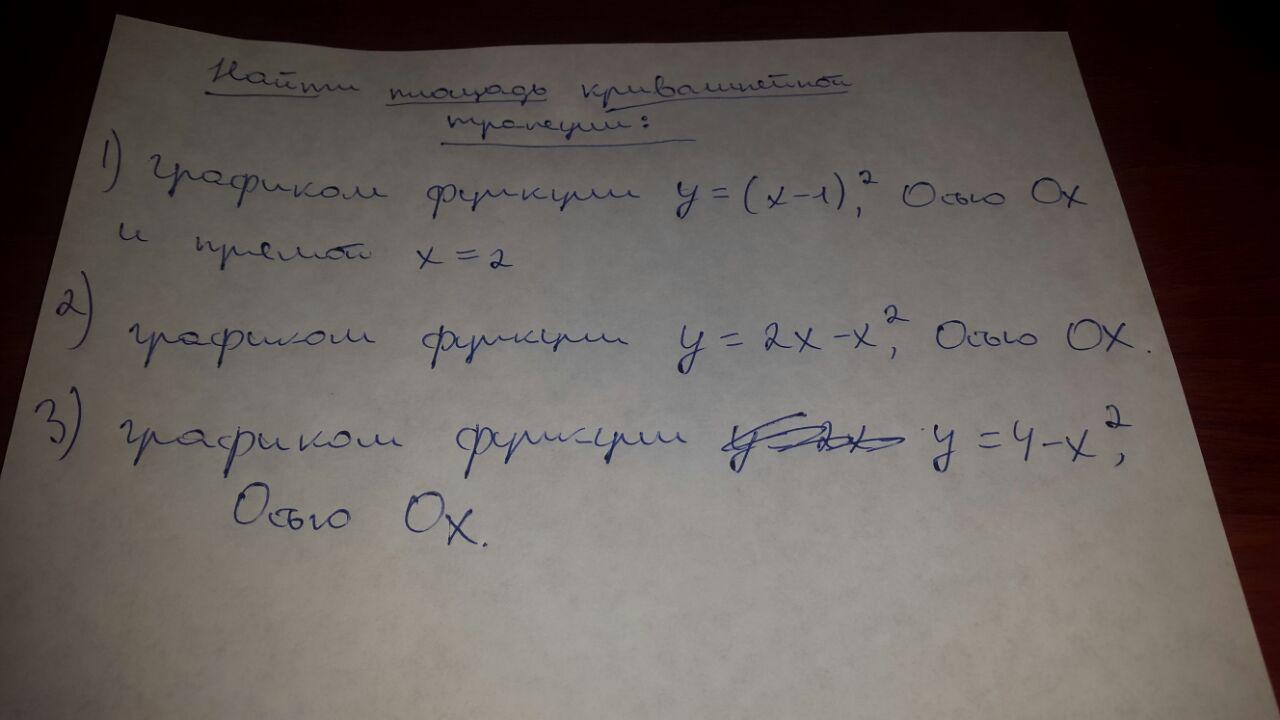 Найти площадь криволинейной
трапеции:
1) графиком функции y = (x-1)², Осью Ox
и прямой x = 2
2) графиком функции y = 2x - x², Осью OX.
3) графиком функции y = 4 - x²,
Осью Ox.